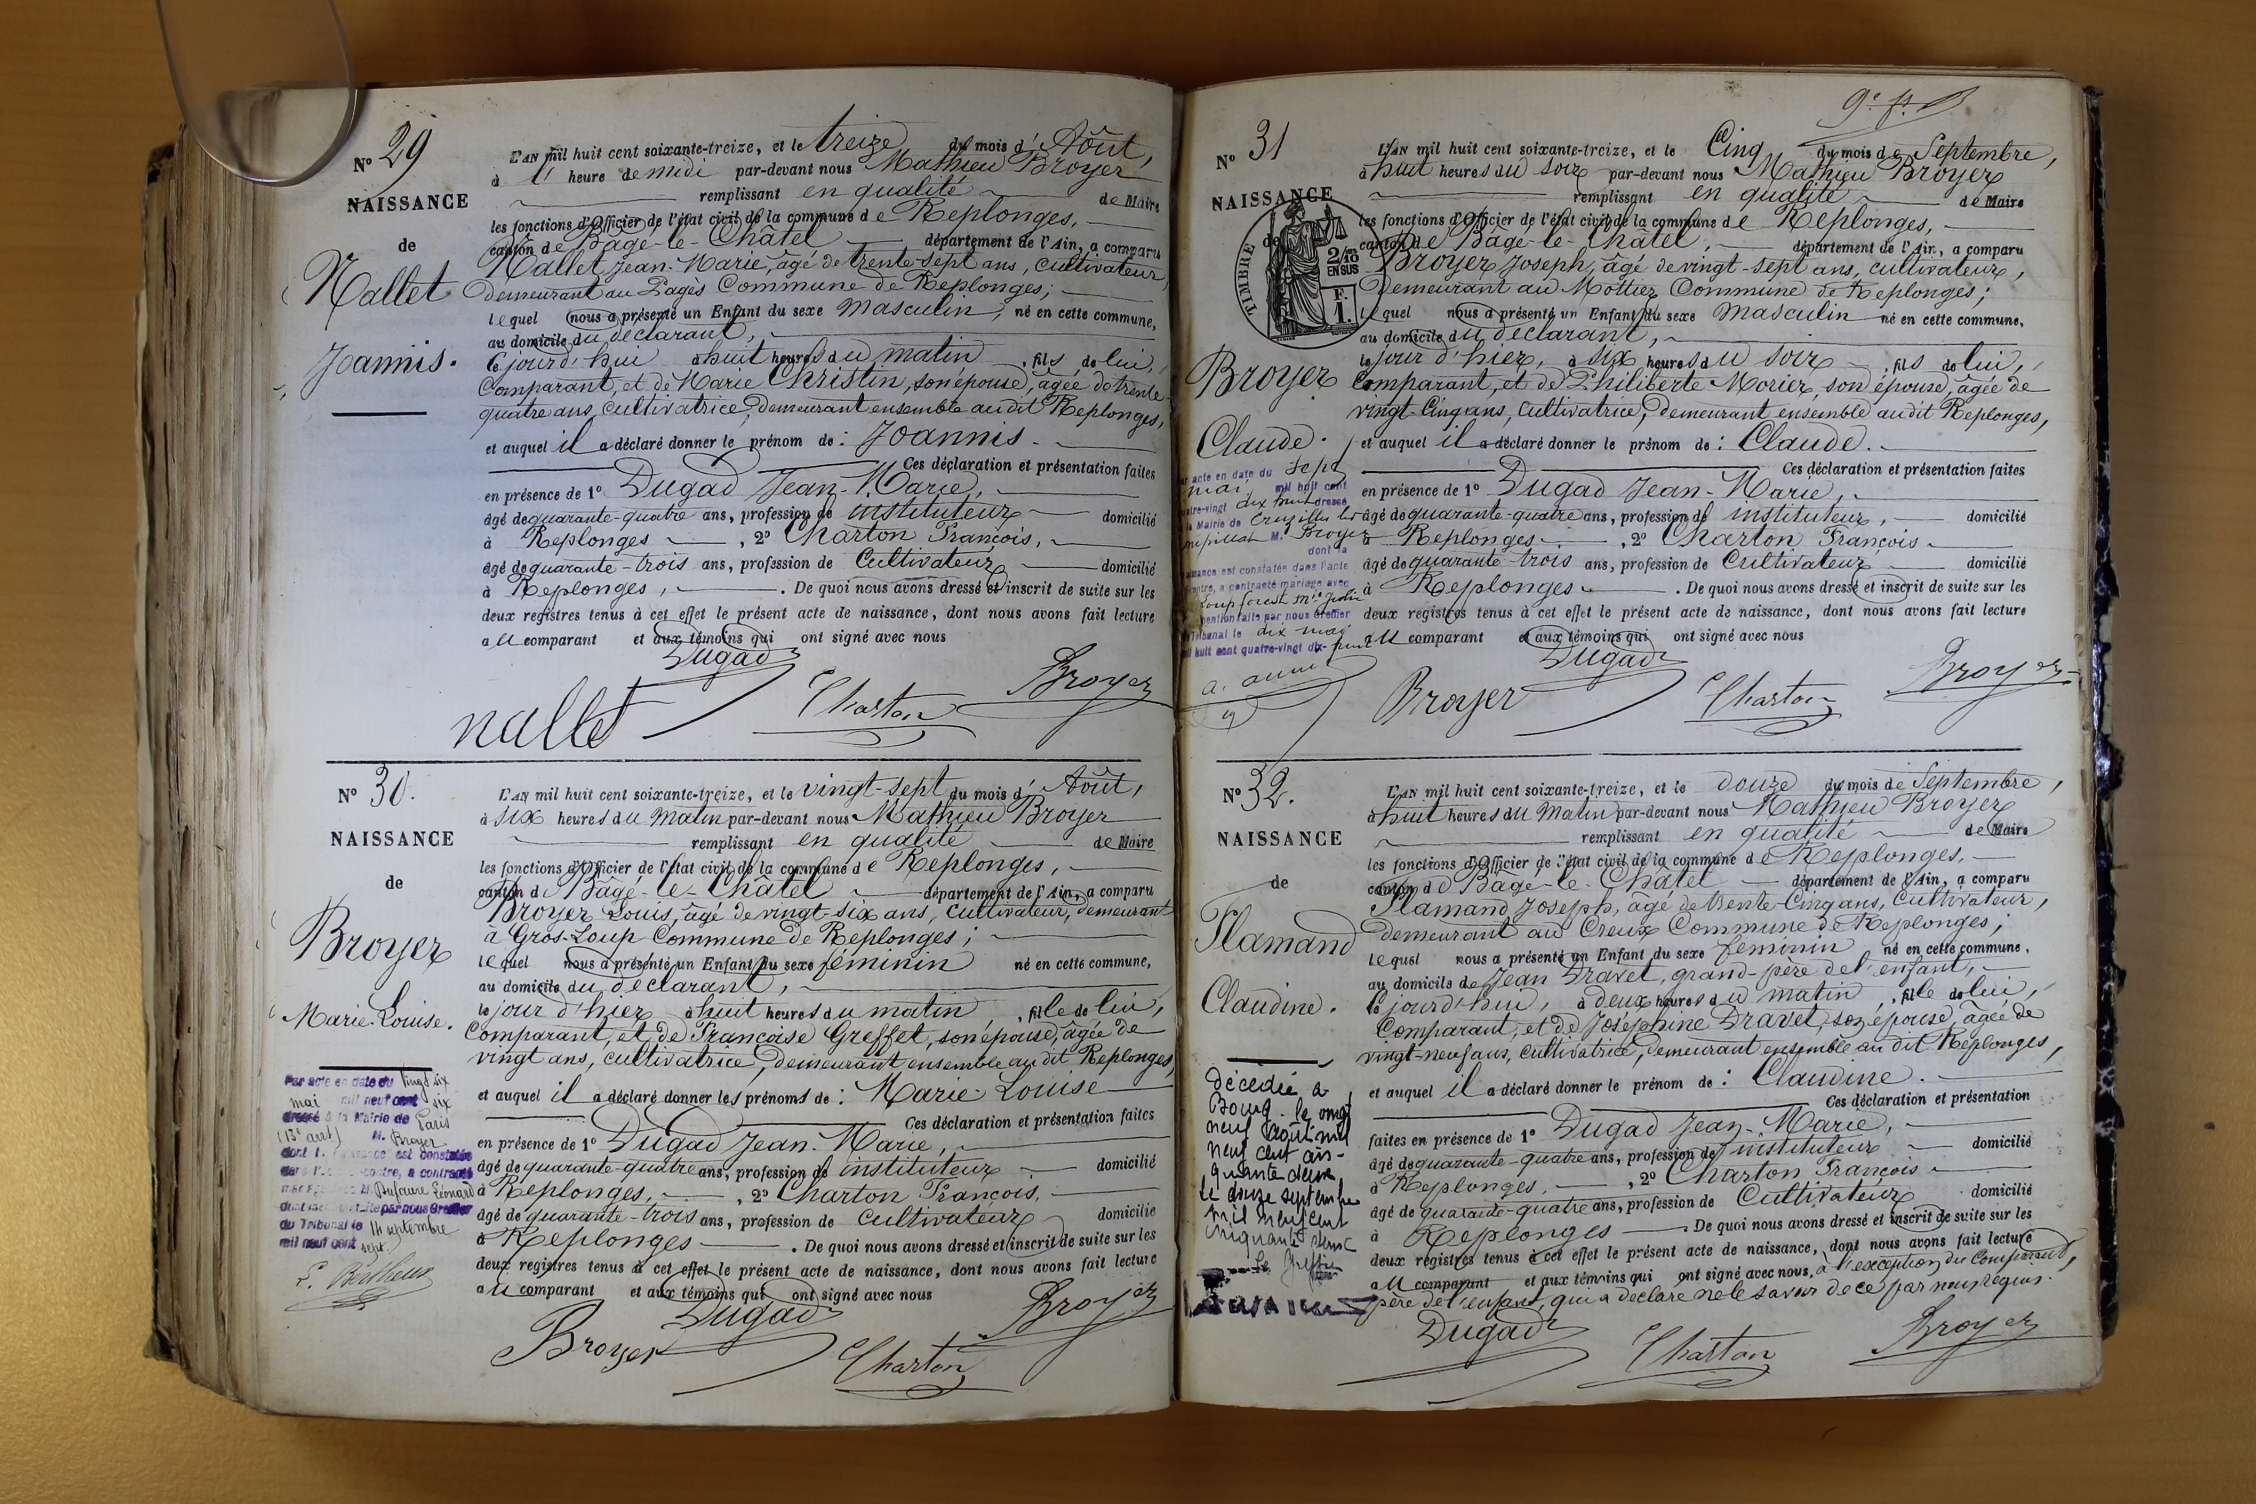 N° 29
NAISSANCE
de
Nallet
Joannis.
L'AN mil huit cent soixante-treize, et le treize du mois d' Août,
à l' heure de midi par-devant nous Mathieu Broyer
remplissant en qualité de Maire
les fonctions d'Officier de l'état civil de la commune de Replonges,
canton de Bâgé-le-Châtel département de l'Ain, a comparu
Nallet Jean-Marie, âgé de trente-sept ans, cultivateur,
demeurant au Pagès Commune de Replonges;
lequel nous a présenté un Enfant du sexe masculin, né en cette commune,
au domicile du déclarant,
ce jourd'hui à huit heures du matin, fils de lui,
comparant, et de Marie Christin, son épouse, âgée de trente-
quatre ans, cultivatrice, demeurant ensemble au dit Replonges,
et auquel il a déclaré donner le prénom de : Joannis.
Ces déclaration et présentation faites
en présence de 1° Dugad Jean-Marie,
âgé de quarante-quatre ans, profession de instituteur domicilié
à Replonges, 2° Charton François,
âgé de quarante-trois ans, profession de Cultivateur domicilié
à Replonges, . De quoi nous avons dressé et inscrit de suite sur les
deux registres tenus à cet effet le présent acte de naissance, dont nous avons fait lecture
au comparant et aux témoins qui ont signé avec nous
Dugad
nallet Charton Broyer
N° 30.
NAISSANCE
de
Broyer
Marie-Louise.
Par acte en date du vingt six
mai mil neuf cent six
dressé à la Mairie de Paris
(13e arrt) M. Broyer
dont la naissance est constatée
dans l'acte ci-contre, a contracté
mariage avec M. Dufaure Léonard
dont mention faite par nous Greffier
du Tribunal le 14 septembre
mil neuf cent sept.
L'AN mil huit cent soixante-treize, et le vingt-sept du mois d' Août,
à six heures du matin par-devant nous Mathieu Broyer
remplissant en qualité de Maire
les fonctions d'Officier de l'état civil de la commune de Replonges,
canton de Bâgé-le-Châtel département de l'Ain, a comparu
Broyer Louis, âgé de vingt-six ans, cultivateur, demeurant
à Gros-Loup Commune de Replonges;
lequel nous a présenté un Enfant du sexe féminin né en cette commune,
au domicile du déclarant,
le jour d'hier à huit heures du matin, fille de lui,
comparant, et de Françoise Greffet, son épouse, âgée de
vingt ans, cultivatrice, demeurant ensemble au dit Replonges,
et auquel il a déclaré donner les prénoms de : Marie-Louise
Ces déclaration et présentation faites
en présence de 1° Dugad Jean-Marie,
âgé de quarante-quatre ans, profession de instituteur domicilié
à Replonges, 2° Charton François,
âgé de quarante-trois ans, profession de cultivateur domicilié
à Replonges . De quoi nous avons dressé et inscrit de suite sur les
deux registres tenus à cet effet le présent acte de naissance, dont nous avons fait lecture
au comparant et aux témoins qui ont signé avec nous
Dugad Broyer
Broyer Charton
N° 31
NAISSANCE
de
TIMBRE
2/10
EN SUS
F.
1.
Broyer
Claude.
acte en date du sept
mai mil huit cent
quatre-vingt dix huit dressé
à la Mairie de Cruzilles les
mépillat M. Broyer
dont la
naissance est constatée dans l'acte
ci-contre, a contracté mariage avec
Loupforest Mie Julie
mention faite par nous Greffier
du Tribunal le dix mai
mil huit cent quatre-vingt dix-huit
L'AN mil huit cent soixante-treize, et le Cinq du mois de Septembre,
à huit heures du soir par-devant nous Mathieu Broyer
remplissant en qualité de Maire
les fonctions d'Officier de l'état civil de la commune de Replonges,
canton de Bâgé-le-Châtel, département de l'Ain, a comparu
Broyer Joseph, âgé de vingt-sept ans, cultivateur,
demeurant au Mottier Commune de Replonges;
lequel nous a présenté un Enfant du sexe masculin né en cette commune,
au domicile du déclarant,
le jour d'hier, à six heures du soir, fils de lui,
comparant, et de Philiberte Morier, son épouse, âgée de
vingt-cinq ans, cultivatrice, demeurant ensemble au dit Replonges,
et auquel il a déclaré donner le prénom de : Claude.
Ces déclaration et présentation faites
en présence de 1° Dugad Jean-Marie,
âgé de quarante-quatre ans, profession de instituteur, domicilié
à Replonges, 2° Charton François
âgé de quarante-trois ans, profession de Cultivateur domicilié
à Replonges . De quoi nous avons dressé et inscrit de suite sur les
deux registres tenus à cet effet le présent acte de naissance, dont nous avons fait lecture
au comparant et aux témoins qui ont signé avec nous
Dugad
Broyer Charton Broyer
N° 32.
NAISSANCE
de
Flamand
Claudine.
décédée à
Bourg le vingt
neuf août mil
neuf cent cin-
quante deux
Le douze septembre
mil neuf cent
cinquante deux
Le Greffier
L'AN mil huit cent soixante-treize, et le douze du mois de Septembre,
à huit heures du matin par-devant nous Mathieu Broyer
remplissant en qualité de Maire
les fonctions d'Officier de l'état civil de la commune de Replonges,
canton de Bâgé-le-Châtel département de l'Ain, a comparu
Flamand Joseph, âgé de trente-cinq ans, cultivateur,
demeurant au Creux Commune de Replonges;
lequel nous a présenté un Enfant du sexe féminin né en cette commune,
au domicile de Jean Dravet, grand-père de l'enfant,
ce jourd'hui, à deux heures du matin, fille de lui,
comparant, et de Joséphine Dravet, son épouse, âgée de
vingt-neuf ans, cultivatrice, demeurant ensemble au dit Replonges,
et auquel il a déclaré donner le prénom de : Claudine.
Ces déclaration et présentation
faites en présence de 1° Dugad Jean-Marie,
âgé de quarante-quatre ans, profession de instituteur domicilié
à Replonges, 2° Charton François
âgé de quarante-quatre ans, profession de Cultivateur domicilié
à Replonges . De quoi nous avons dressé et inscrit de suite sur les
deux registres tenus à cet effet le présent acte de naissance, dont nous avons fait lecture
au comparant et aux témoins qui ont signé avec nous, à l'exception du Comparant,
père de l'enfant, qui a déclaré ne le savoir de ce par nous requis.
Dugad Charton Broyer